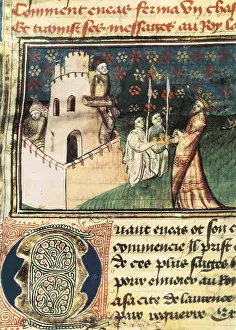 Comment eneas ferma Un chas
Et tramist ses messages au Roy la
Quant eneas ot son c
commencie il prist
de ces plus sages
pour enuoier au Roy
a la cite de laurence
par requerre Et